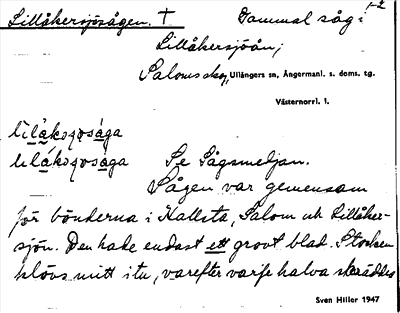 1-2
Lillåkersjösågen. † Gammal såg i
Lillåkersjöån,
Saloms skog, Ullångers sn, Ångermanl. s. doms. tg.
Västernorrl. l.
Se Sågsmedjan.
Sågen var gemensam
för bönderna i Kallsta, Salom och Lillåker-
sjön. Den hade endast ett grovt blad. Stocken
klövs mitt itu, varefter varje halva skräddes
Sven Hiller 1947